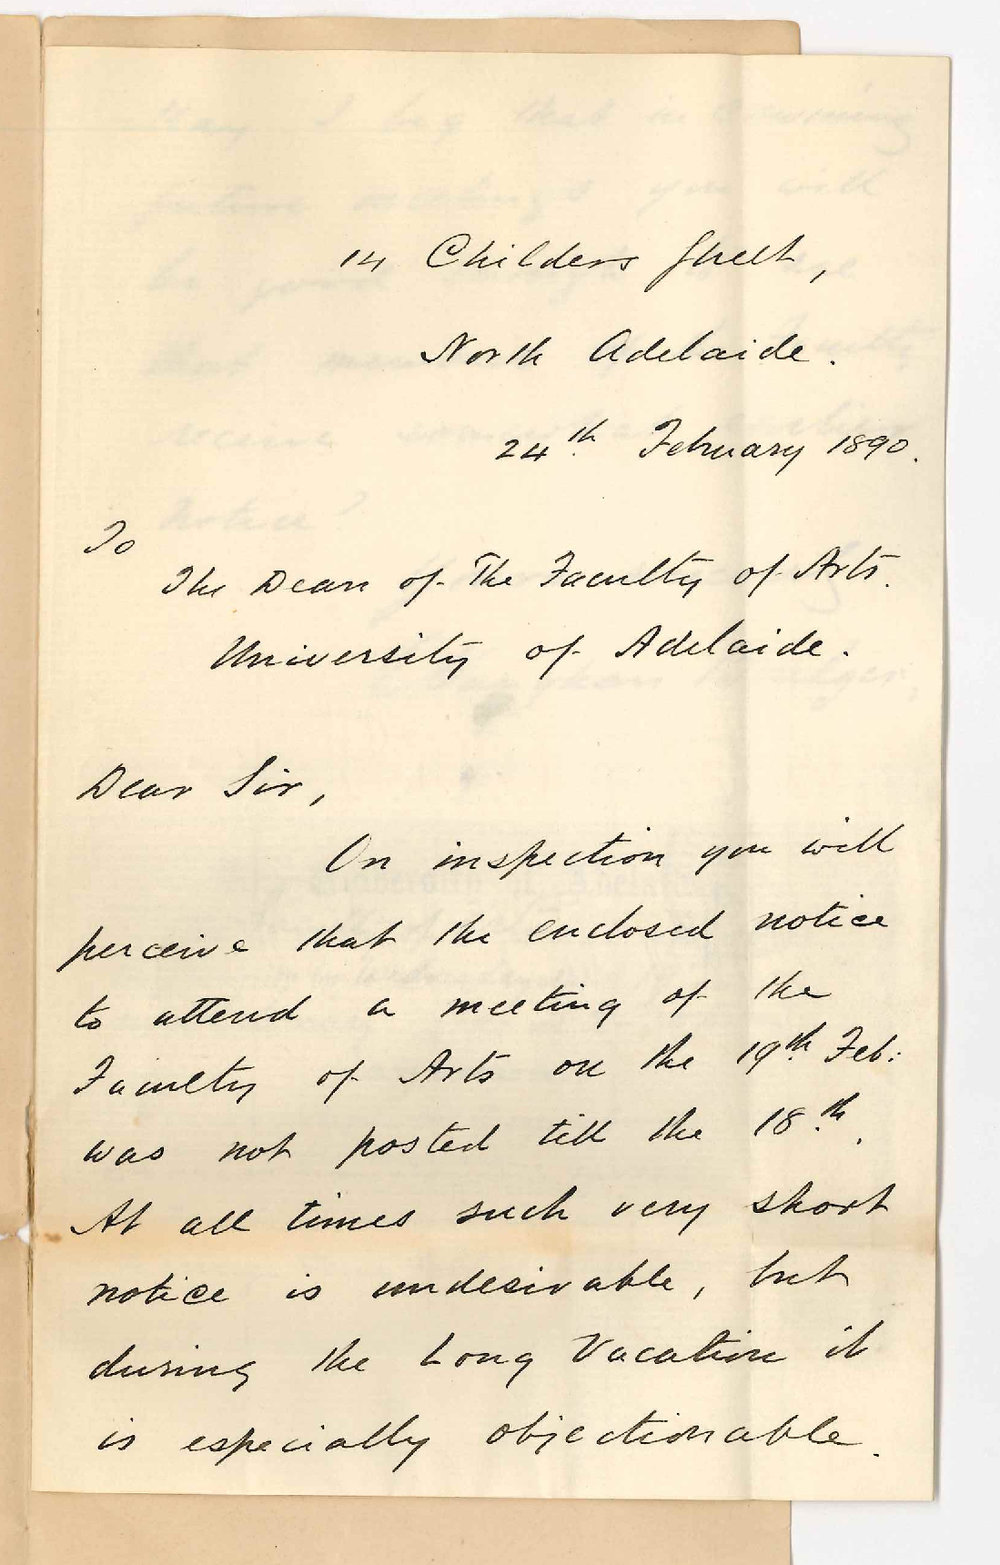 14 Childers Street,
North Adelaide.
24th February 1890.
To
The Dean of The Faculty of Arts.
University of Adelaide.
Dear Sir,
On inspection you will
perceive that the enclosed notice
to attend a meeting of the
Faculty of Arts on the 19th Feb:
was not posted till the 18th.
At all times such very short
notice is undesirable, but
during the Long Vacation it
is especially objectionable.